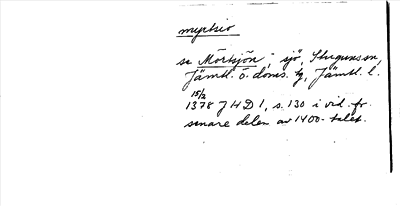 myrtsio
se Mörtsjön, sjö, Stuguns sn,
Jämtl. ö. doms. tg, Jämtl. l.
15/2
1378 JHD 1, s. 130 i vid. fr.
senare delen av 1400-talet.